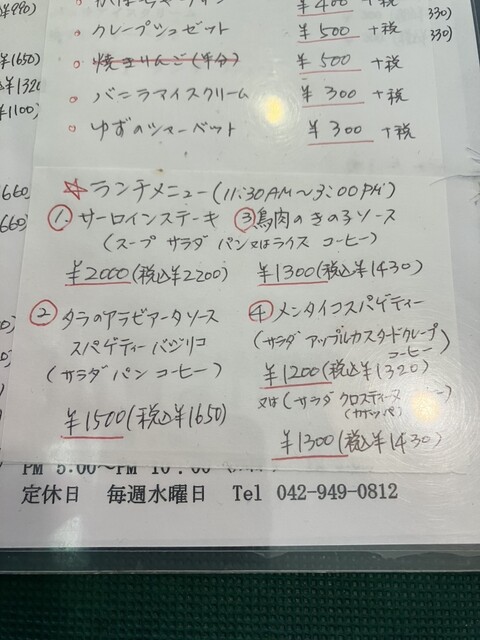 ¥990)
¥400 +税
330)
クレープシュゼット ¥500 +税
330)
¥1650)
焼きりんご(半分) ¥500 +税
¥1320
バニラアイスクリーム ¥300 +税
¥1100)
ゆずのシャーベット ¥300 +税
☆ランチメニュー(11:30AM~3:00PM)
①サーロインステーキ
(スープ サラダ パン又はライス コーヒー)
¥2000(税込¥2200)
③鳥肉のきの子ソース
¥1300(税込¥1430)
②タラのアラビアータソース
スパゲティーバジリコ
(サラダ パン コーヒー)
¥1500(税込¥1650)
④メンタイコスパゲティー
(サラダ アップルカスタードクレープ
コーヒー)
¥1200(税込¥1320)
又は(サラダ クロスティーヌ
¥1300(税込¥1430)
PM 5:00~PM 10:00
定休日 毎週水曜日 Tel 042-949-0812